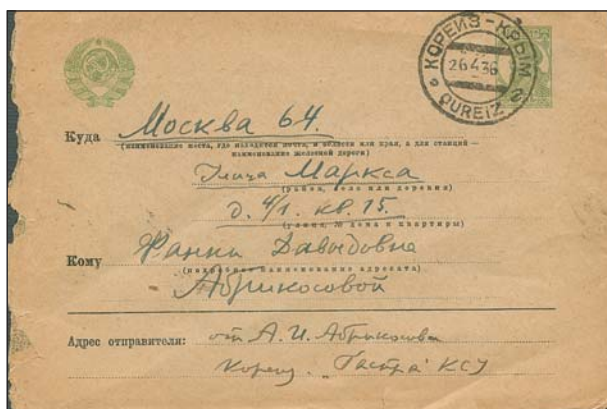 КОРЕИЗ-КРЫМ
26.4.36
QUREIZ
Куда Москва 64.
(наименование места, где находится почта, и области или края, а для станций —
наименование железной дороги)
Улица Маркса
(район, село или деревня)
д. 4/1. кв. 15.
(улица, № дома и квартиры)
Кому Фанни Давыдовне
наименование адресата)
Абрикосовой
Адрес отправителя: от А. И. Абрикосова
Кореиз. КСУ